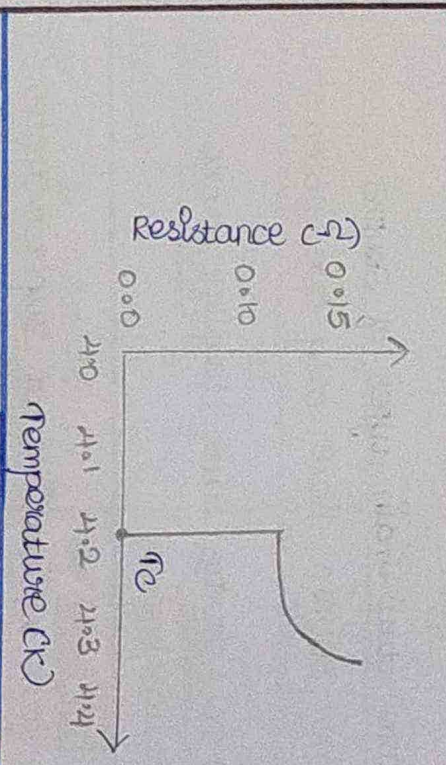 Resistance (Ω)
0.15
0.10
0.0
4.0 4.1 4.2 4.3 4.4
Tc
Temperature (K)